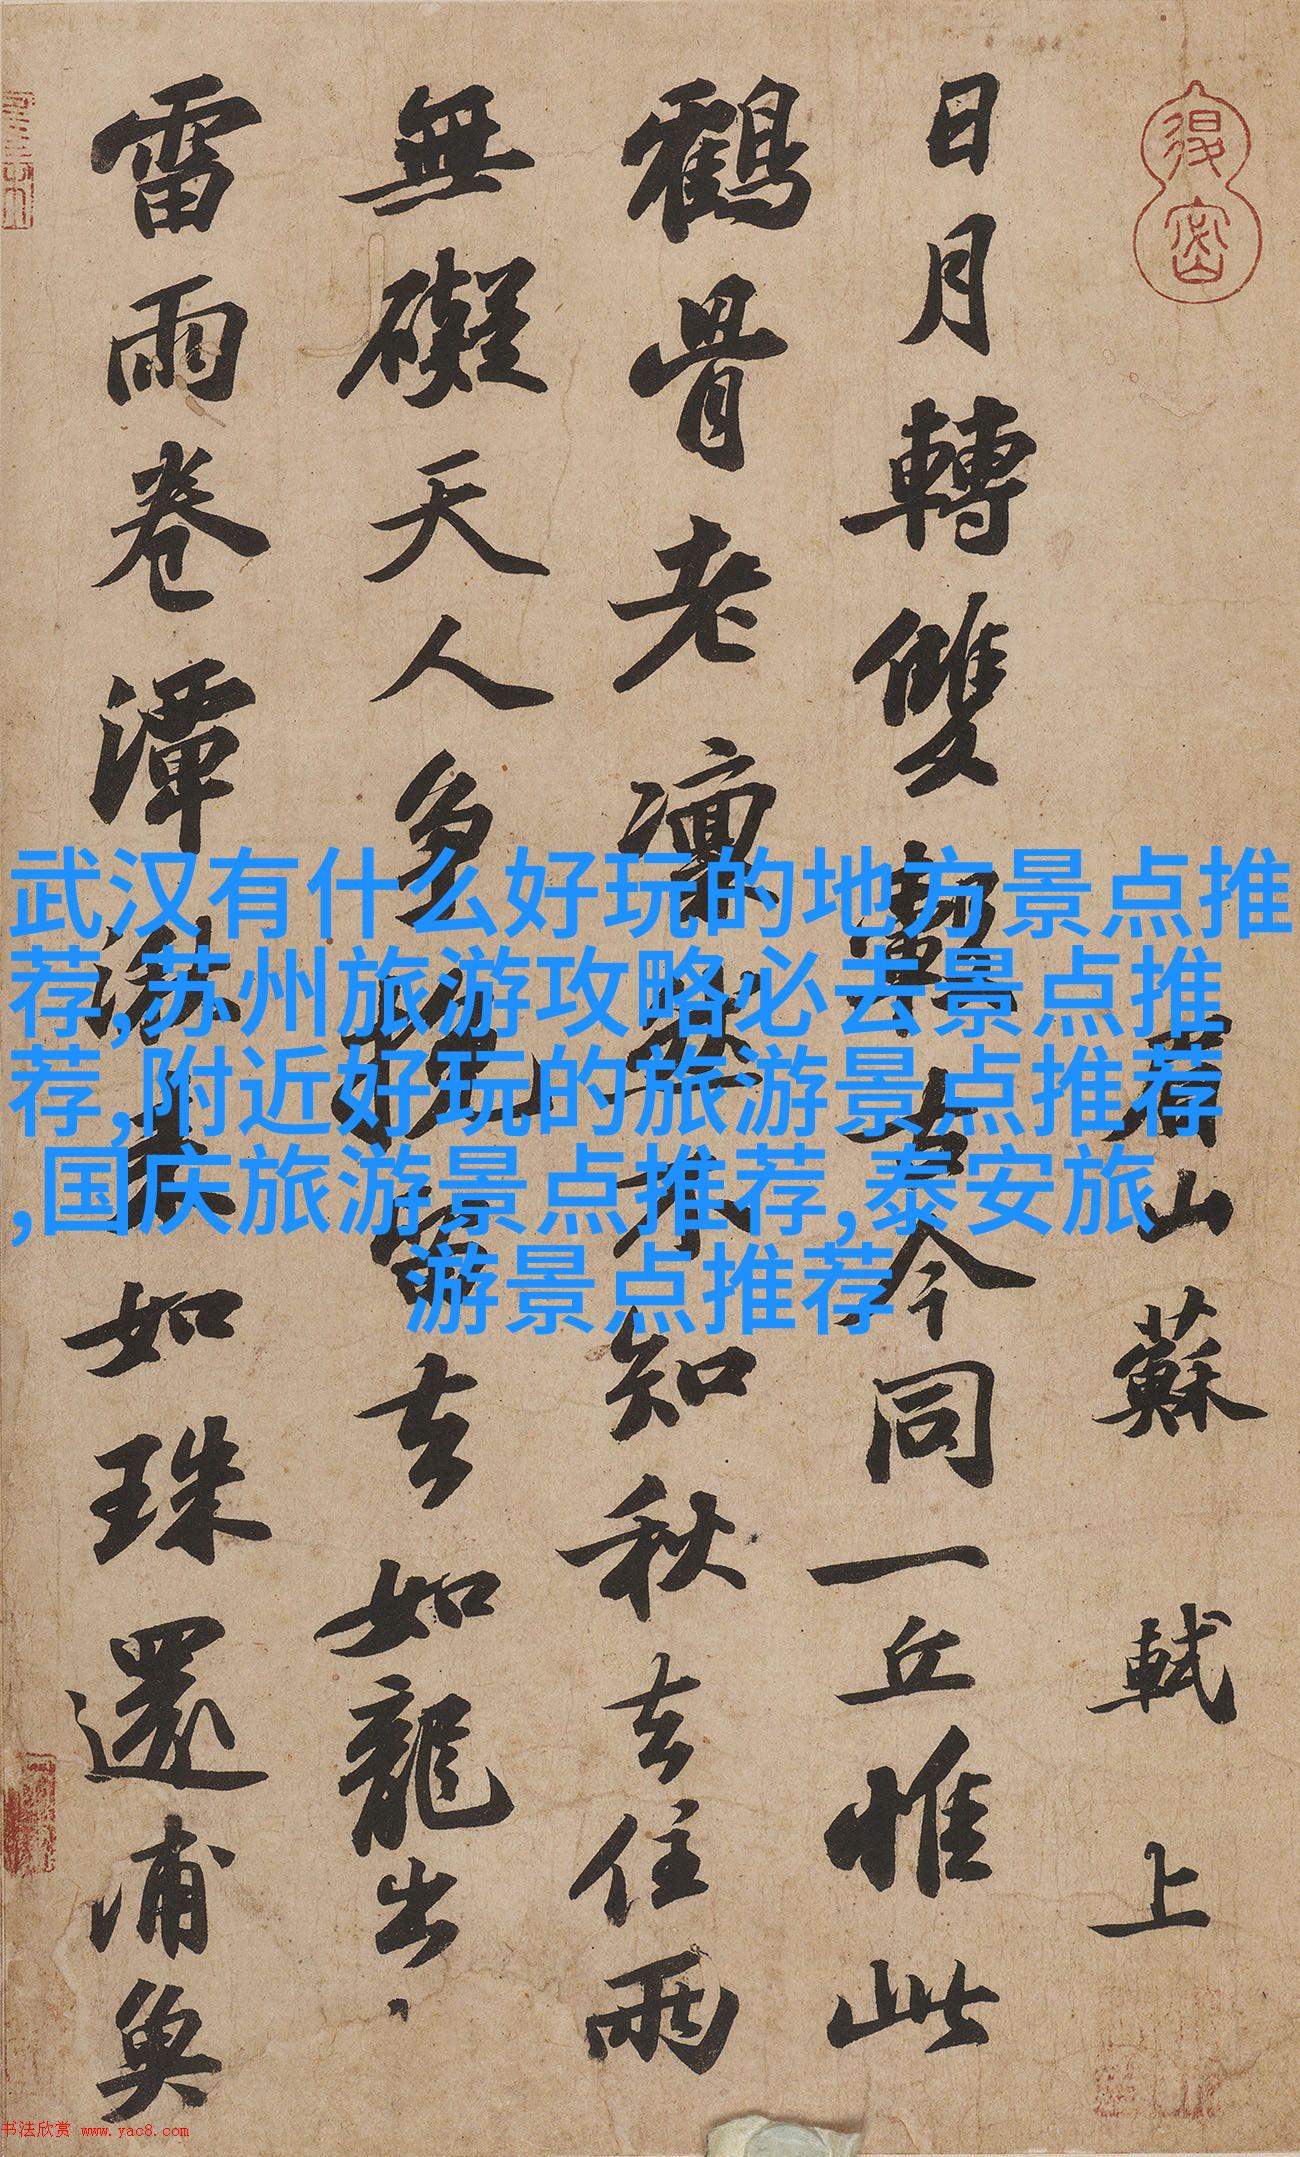 眉山蘇軾上
日月轉雙轂古今同一丘惟此
鶴骨老凜然不知秋去住兩
無礙天人爭挽留去如龍出
雷雨卷潭湫来如珠還浦魚
武汉有什么好玩的地方景点推
荐,苏州旅游攻略必去景点推
荐,附近好玩的旅游景点推荐
,国庆旅游景点推荐,泰安旅
游景点推荐
书法欣赏 www.yac8.com